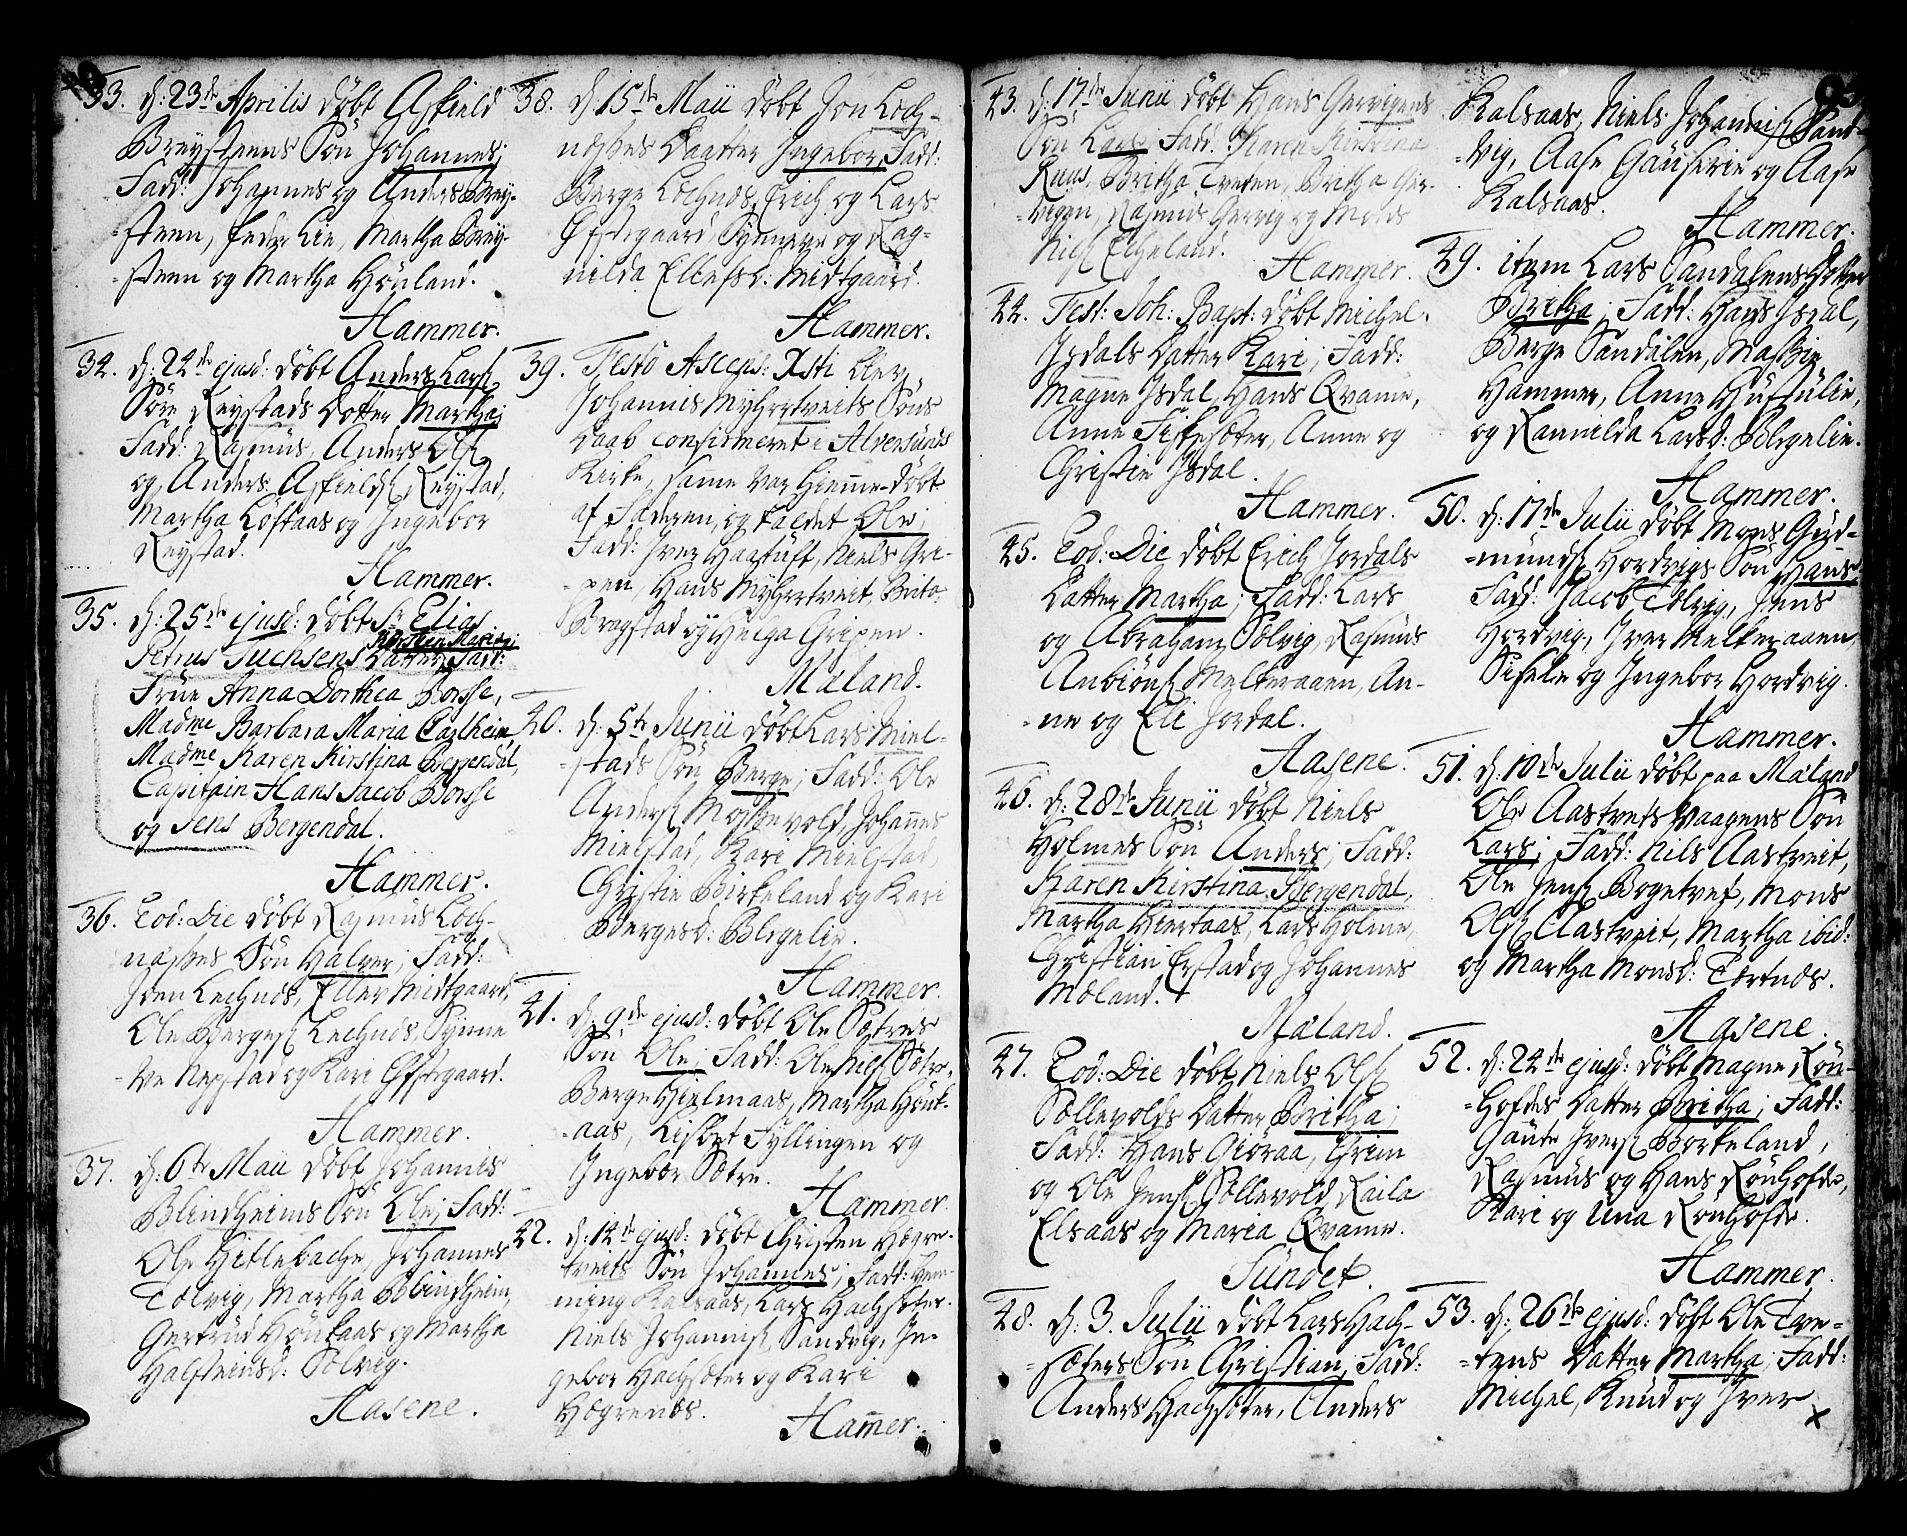 33. d: 23de Aprilis döbt Asfield
Breysteens Sön Johannes;
Fadd: Johannes og Anders Brey-
-steen, Peder Lie, Martha Brey-
-steen og Martha Höyland.
Hammer.
34. d: 24de ejusd: döbt Anders Lars
Söre Reystads Dotter Martha;
Fadd: Rasmus, Anders Ols
og Anders Asfields Reystad,
Martha Löftaas og Ingebor
Reystad.
Hammer.
35. d: 25de ejusd: döbt Sr Elias
Petrus Tuchsens Datter Karsten Maria; Fadd:
Frue Anna Dorthea Borse,
Madme Barbara Maria
Madme Karen Kirstina Bergendal,
Capitain Hans Jacob Borse
og Jens Bergendal.
Hammer.
36. Eod: Die döbt Rasmus Loch-
næsses Sön Halver; Fadd:
Joen Lechnes, Eller Midtgaard,
Ole Berges Lechnes, Synne
-ve Nepstad og Kari Efstegaard.
Hammer.
37. d: 6te Maii döbt Johannes
Blindheims Sön Ole; Fadd:
Ole Hitlebache, Johannes
Tolvig, Martha Blindheim,
Gertrud Höukaas og Martha
Halsteinsd: Solvig.
Aasene.
38. d: 15de Maii döbt Jon Loch-
nesses Daatter Ingebor, Fadd:
Berge Lochnes, Erich og Lars
Efstegaard, Synneve og Rag-
nilda Ellefsd: Midtgaard.
Hammer.
39. Festo Ascens: Xsti blev
Johannes Myhrtveits Söns
Daab confirmeret i Alversunds
Kirke, samme var Hiemme-döbt
af Faderen, og kaldet Ole;
Fadd: Iver Haastuft, Niels Gri-
-pen, Hans Myhrtveit, Brita
Bragstad og Helga Gripen.
Mæland.
40. d: 5te Junii döbt Lars Miel-
-stads Sön Berge; Fadd: Ole
Anders Mossevold, Johannes
Mielstad, Kari Mielstad,
Christie Birkeland og Kari
Bergesd: Bligelie.
Hammer.
41. d: 9de ejusd: döbt Ole Sætres
Sön Ole; Fadd: Ole Nils Sætre,
Berge Hielmaas, Martha Höuk-
-aas, Lisbet Fyllingen og
Ingebor Sætre.
Hammer.
42. d: 14de ejusd: döbt Christen Hægre-
tveits Sön Johannes; Fadd: Hem-
ming Kalsaas, Lars Hachsæter,
Niels Johannes Sandvig, In-
gebor Hachsæter og Kari
Hægrenes.
Hammer.
43. d: 17de Junii döbt Hans Gervigens
Sön Lars; Fadd: Karen Kirstina
Ruus, Britha Tveten, Britha Ger-
-vigen, Rasmus Gervig og Mons
Niels Elcheland.
Hammer.
44. Fest: Joh: Bapt: döbt Michel
Isdals Datter Kari; Fadd:
Magne Isdal, Hans Qvame,
Anne Fissesæter, Anne og
Christie Isdal.
Hammer.
45. Eod: Die döbt Erich Jordals
Datter Martha; Fadd: Lars
og Abraham Solvig, Rasmus
Anbiöns Melkeraaen, An-
-ne og Eli Jordal.
Aasene.
46. d: 28de Junii döbt Niels
Holmes Sön Anders; Fadd:
Karen Kirstina Bergendal,
Martha Hiertaas, Lars Holme,
Christian Erstad og Johannes
Mæland.
Mæland.
47. Eod: Die döbt Niels Ols
Söllevolds Datter Britha;
Fadd: Hans Giöraa, Grim
og Ole Jens Söllevold, Raila
Elsaas og Maria Qvame.
Sundet.
48. d: 3. Julii döbt Lars Hach-
-sæters Sön Christian, Fadd:
Anders Hachsæter, Anders
Kalsaas, Niels Johannes Sand-
-vig, Aase Gauserie og Aase
Kalsaas.
Hammer.
49. item Lars Sandalens Dotter
Britha; Fadd: Hans Isdal,
Berge Sandalen, Massie
Hammer, Anne Huftulie,
og Rannilda Larsd: Bligelie.
Hammer.
50. d: 17de Julii döbt Mons Gud-
-munds Hordvigs Sön Hans;
Fadd: Jacob Tolvig, Jens
Hordvig, Iver Melkeraaen,
Sissele og Ingebor Hordvig.
Hammer.
51. d: 10de Julii döbt paa Mæland
Ole Aastveits Vaagens Sön
Lars; Fadd: Nils Aastveit,
Ole Jens Bogetvet, Mons
Ols Aastveit, Martha ibid:
og Martha Monsd: Tertnes.
Aasene.
52. d: 24de ejusd: döbt Magne Rön-
-Hofdes Datter Britha; Fadd:
Gaute Ivers Borkeland,
Rasmus og Hans Rönhofde,
Kari og Una Rönhofde.
Hammer.
53. d: 26de ejusd: döbt Ole Tve-
-tens Datter Martha; Fadd:
Michel, Knud og Iver